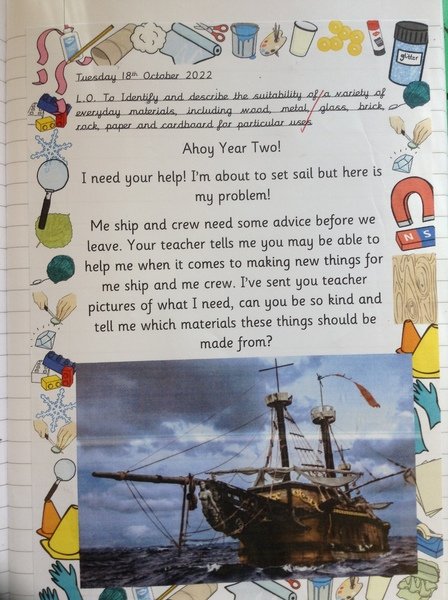 Tuesday 18th October 2022
L.O. To Identify and describe the suitability of a variety of
everyday materials, including wood, metal, glass, brick,
rock, paper and cardboard for particular uses
Ahoy Year Two!
I need your help! I'm about to set sail but here is
my problem!
Me ship and crew need some advice before we
leave. Your teacher tells me you may be able to
help me when it comes to making new things for
me ship and me crew. I've sent you teacher
pictures of what I need, can you be so kind and
tell me which materials these things should be
made from?
glitter
N S